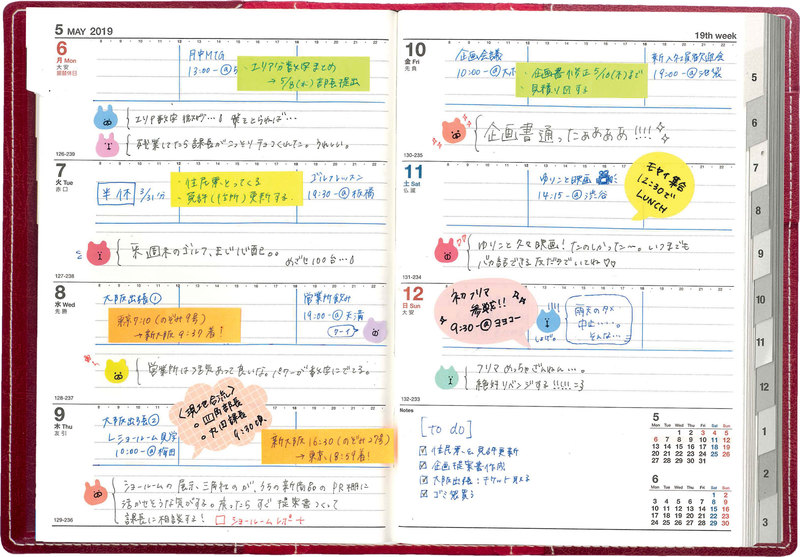 5 MAY 2019
8 9 10 11 12 13 14 15 16 17 18 19 20 21 22
6
月 Mon
大安
振替休日
月中MTG
13:00-@5
・エリア分数字まとめ
→5/8(水)部長提出
126-239
7
火 Tue
赤口
半休
3/31分
・住民票とってくる
・免許(住所)更新する
ゴルフレッスン
19:30-@板橋
来週末のゴルフ、まじ心配。。
めざせ100台…!
127-238
8
水 Wed
先勝
大阪出張①
東京7:10(のぞみ9号)
→新大阪9:37着!
営業所飲み
19:00-@天満
営業所は活気あって良いな。パワーが数字にでてる。
128-237
9
木 Thu
友引
大阪出張②
レショールーム見学
10:00-@梅田
〈現地合流〉
四角部長
丸田課長
9:30頃
新大阪16:30(のぞみ
→東京18:59着!
ショールームの展示、三角社のが、うちの新商品のPR棚に
活かせそうな気がする。戻ったらすぐ提案書つくって
課長に相談する!
□ショールームレポート
129-236
19th week
8 9 10 11 12 13 14 15 16 17 18 19 20 21 22
10
金 Fri
先負
企画会議
10:00-@大ホ
・企画書修正5/10(木)まで
・見積り回する
新入社員歓迎会
19:00-@池袋
企画書通ったぁぁぁぁ!!!!
130-235
11
土 Sat
仏滅
ゆりこと映画
14:15-@渋谷
モヤイ集合
12:30で
LUNCH
ゆりこと久々映画!たのしかった〜。いつまでも
バカ話できる友だちでいてね♡♡
131-234
12
日 Sun
大安
初フリマ
参戦!!
9:30-@ヨヨコー
しょぼ。
雨天のタメ
中止……。
そんな…
フリマめっちゃざんねん…。
絶対リベンジする!!!!!
132-233
Notes
[to do]
☑住民票と免許更新
☑企画提案書作成
☑大阪出張:チケット取る
☑ゴミ袋買う
5
M T W T F S S
1 2 3 4 5
6 7 8 9 10 11 12
13 14 15 16 17 18 19
20 21 22 23 24 25 26
27 28 29 30 31
6
M T W T F S S
1 2
3 4 5 6 7 8 9
10 11 12 13 14 15 16
17 18 19 20 21 22 23
24 25 26 27 28 29 30
5
6
7
8
9
10
11
12
1
2
3